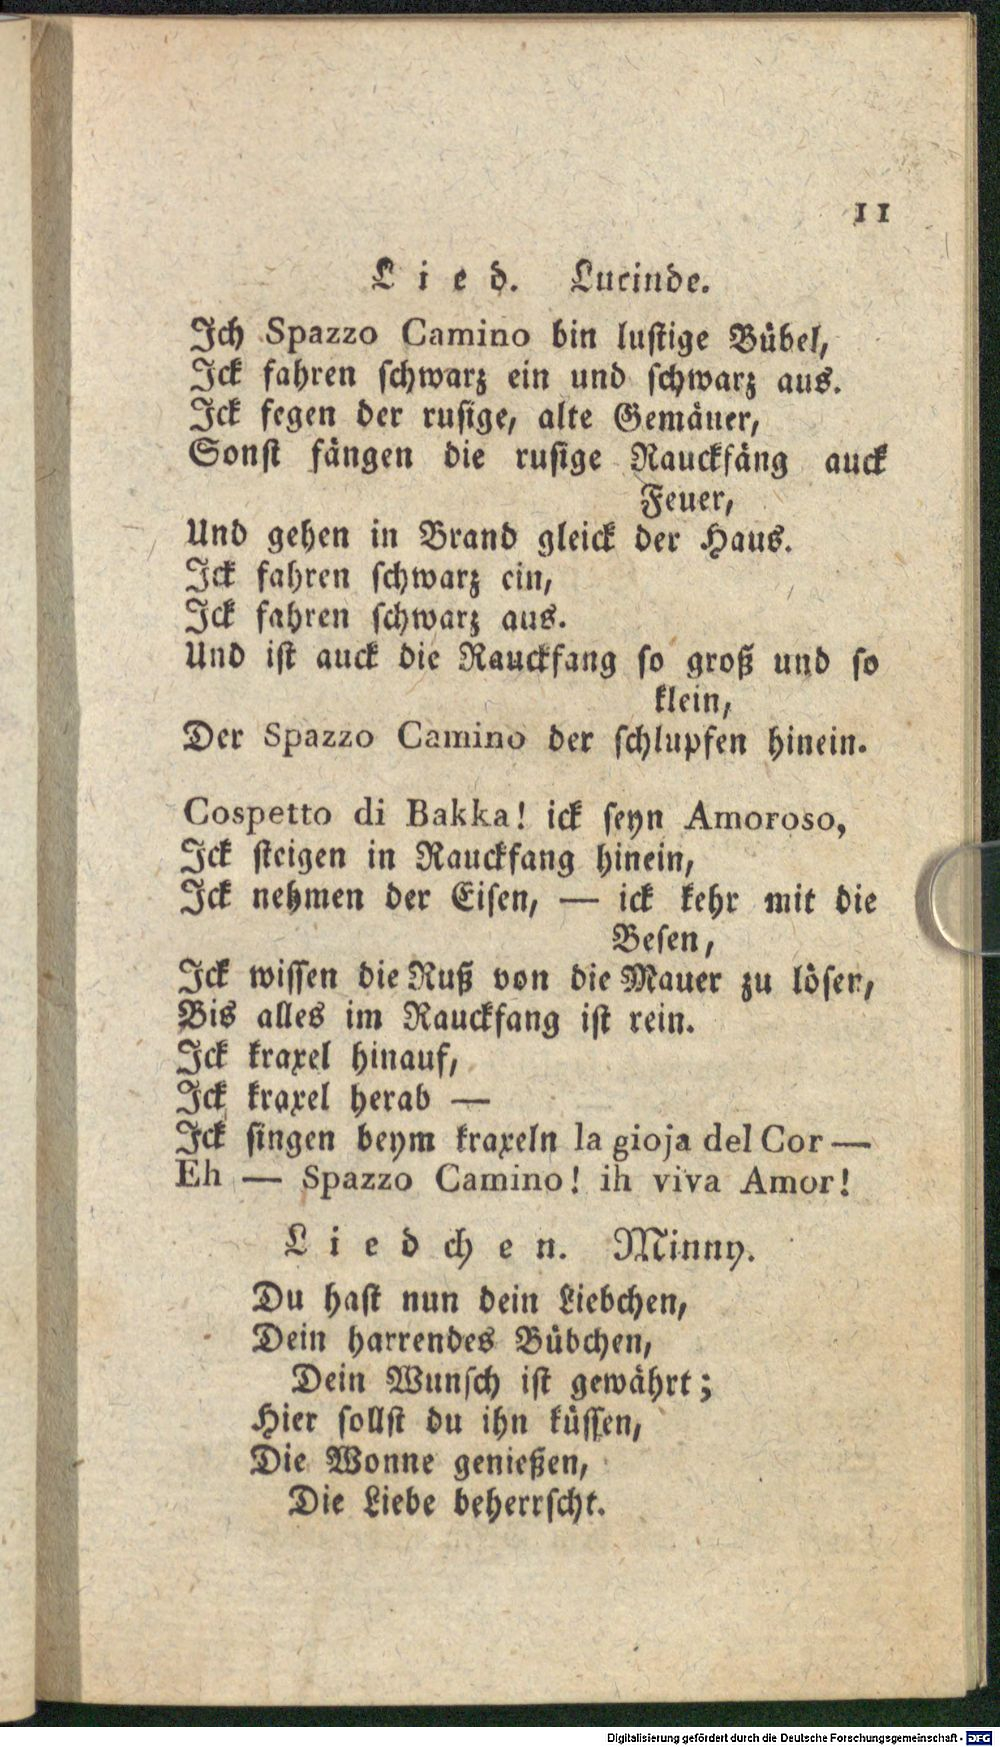 11
Lied. Lucinde.
Ich Spazzo Camino bin lustige Bübel,
Ick fahren schwarz ein und schwarz aus.
Ick fegen der rusige, alte Gemäuer,
Sonst fängen die rusige Rauckfäng auck
Feuer,
Und gehen in Brand gleick der Haus.
Ick fahren schwarz ein,
Ick fahren schwarz aus.
Und ist auck die Rauckfang so groß und so
klein,
Der Spazzo Camino der schlupfen hinein.
Cospetto di Bakka! ick seyn Amoroso,
Ick steigen in Rauckfang hinein,
Ick nehmen der Eisen, — ick kehr mit die
Besen,
Ick wissen die Ruß von die Mauer zu lösen,
Bis alles im Rauckfang ist rein.
Ick kraxel hinauf,
Ick kraxel herab —
Ick singen beym kraxeln la gioja del Cor —
Eh — Spazzo Camino! ih viva Amor!
Liedchen. Minny.
Du hast nun dein Liebchen,
Dein harrendes Bübchen,
Dein Wunsch ist gewährt;
Hier sollst du ihn küssen,
Die Wonne genießen,
Die Liebe beherrscht.
Digitalisierung gefördert durch die Deutsche Forschungsgemeinschaft - DFG